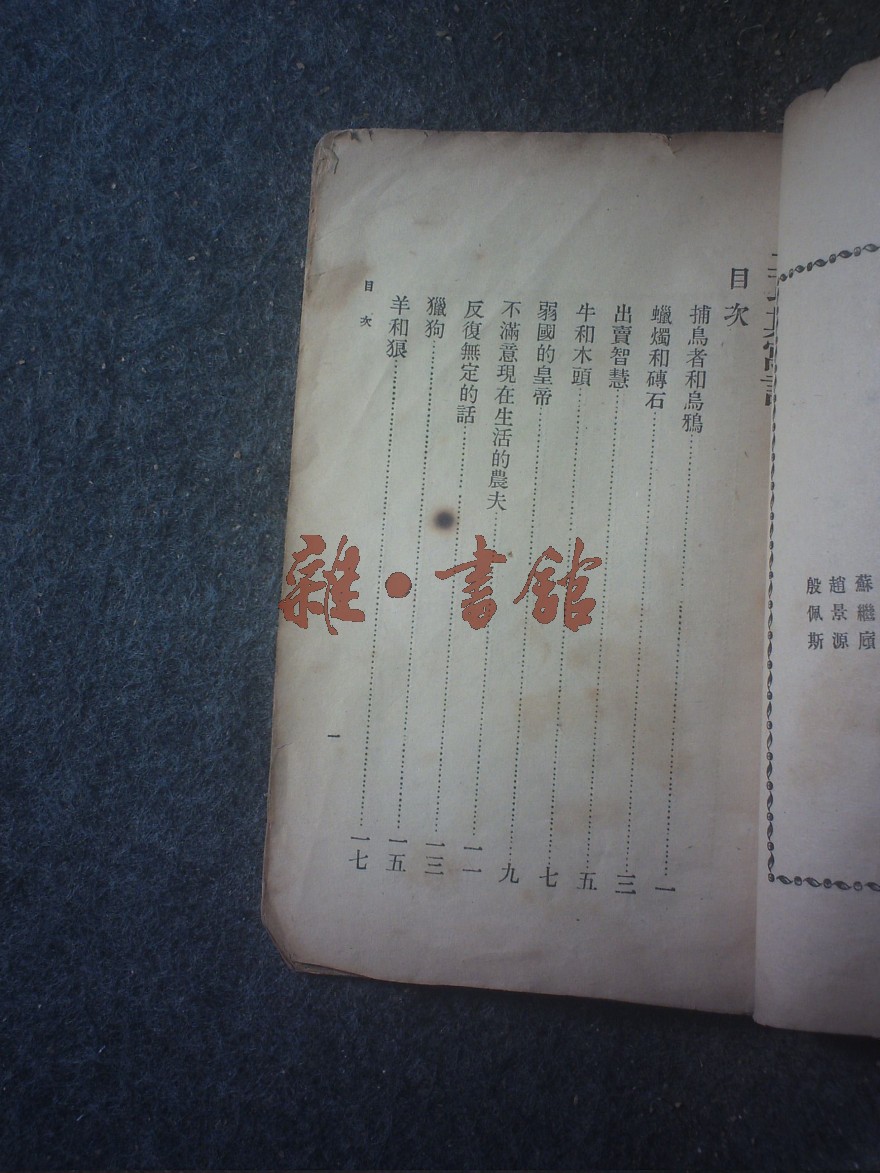 蘇繼廎
趙景源
殷佩斯
目次
捕鳥者和烏鴉……一
蠟燭和磚石……三
出賣智慧……五
牛和木頭……七
弱國的皇帝……九
不滿意現在生活的農夫……一一
反復無定的話……一三
獵狗……一五
羊和狼……一七
目次
一
雜•書館